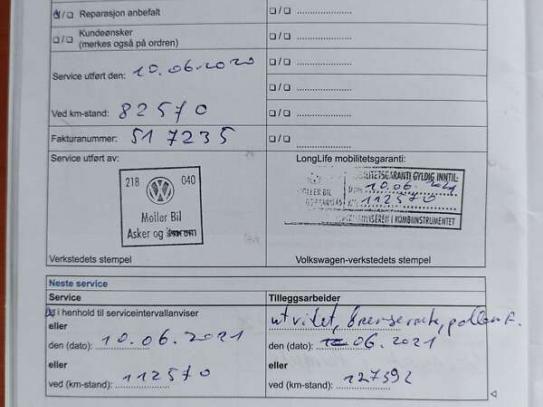 Reparasjon anbefalt
Kundeønsker
(merkes også på ordren)
Service utført den: 10.06.2020
Ved km-stand: 82570
Fakturanummer: 517235
Service utført av:
218 040
Møller Bil
Asker og
Verkstedets stempel
LongLife mobilitetsgaranti:
MOBILITETSGARANTI GYLDIG INNTIL:
10.06.2021
112570
Volkswagen-verkstedets stempel
Neste service
Service
i henhold til serviceintervallanviser
eller
den (dato): 10.06.2021
eller
ved (km-stand): 112570
Tilleggsarbeider
utvidet, bremsevæske, pollenf.
den (dato): 06.2021
eller
ved (km-stand): 127592